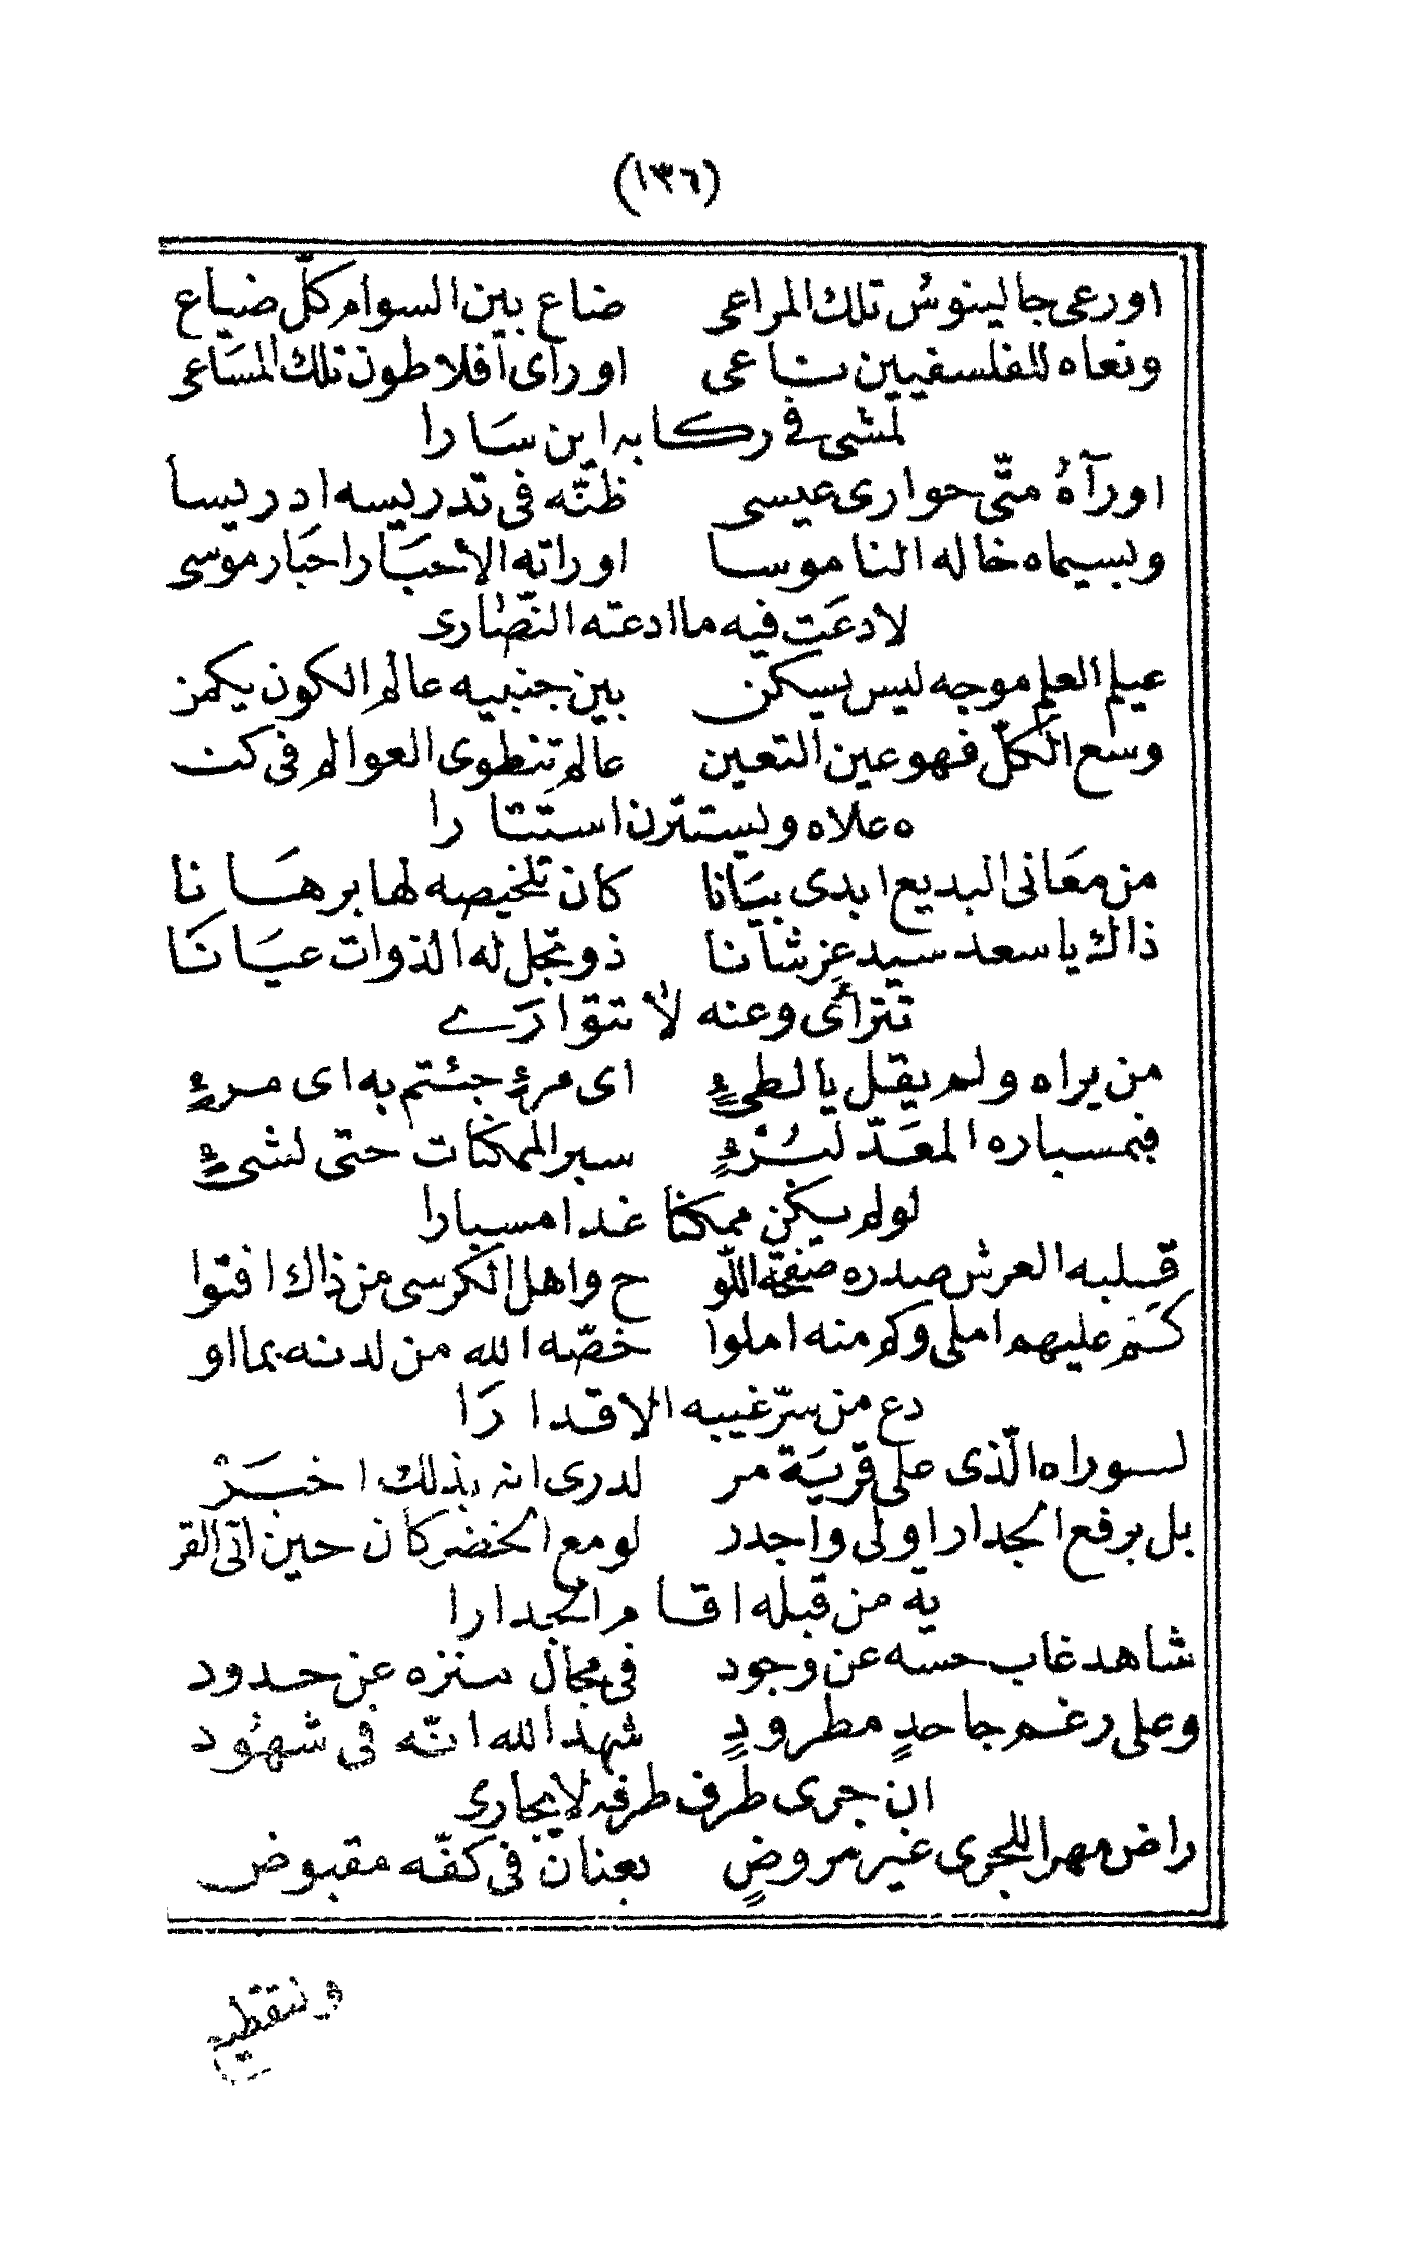 (١٣٦)
اورعى جالينوسُ تلك المراعى ضاع بين السوام كلّ ضياع
ونعاه للفلسفيين ناعى اورأى أفلاطون تلك المسَاعى
لمشى فى ركابه اين سَارا
اورآهُ متّى حوارى عيسى ظنّه فى تدريسه ادريسا
وبسيماه خاله الناموسا اوراته الأحبَار احبَار موسى
لادعَت فيه ما ادعته النّصارى
عيلم العلم موجه ليس يسكن بين جنبيه عالم الكون يكمن
وسع الكلّ فهو عين التعين عالم تنطوى العوالم فى كن
ه علاه ويستترن استتارا
من معَانى البديع ابدى بيَانا كان تلخيصه لها برهَانا
ذاك يا سعد سيد عِز شأنا ذو تجل له الذوات عيَانَا
تترأى وعنه لا تتوارَے
من يراه ولم يقل يا لطئٍ اى مرءٍ جئتم به اى مرءٍ
فبمسباره المعَدّ لبُرْءٍ سبر الممكنات حتى لشئٍ
لو لم يكن ممكنا غدا مسبارا
قلبه العرش صدره صفحة اللو ح واهل الكرسى من ذاك افتوا
كم عليهم املى وكم منه املوا خصّه الله من لدنه بما او
دع من سرّ غيبه الاقدارَا
لسوراه الّذى على قريَة مر لدرى انه بذلك اخبَرْ
بل برفع الجدار اولى واجدر لو مع الخضر كان حين اتى القر
ية من قبله اقام الجدارا
شاهد غاب حسه عن وجود فى مجال منزه عن حدود
وعلى رغم جاحدٍ مطرودٍ شهد الله انّه فى شهُود
ان جرى طرف طرفه لا يجارى
راض مهرا للجرى غير مروضٍ بعنان فى كفّه مقبوض